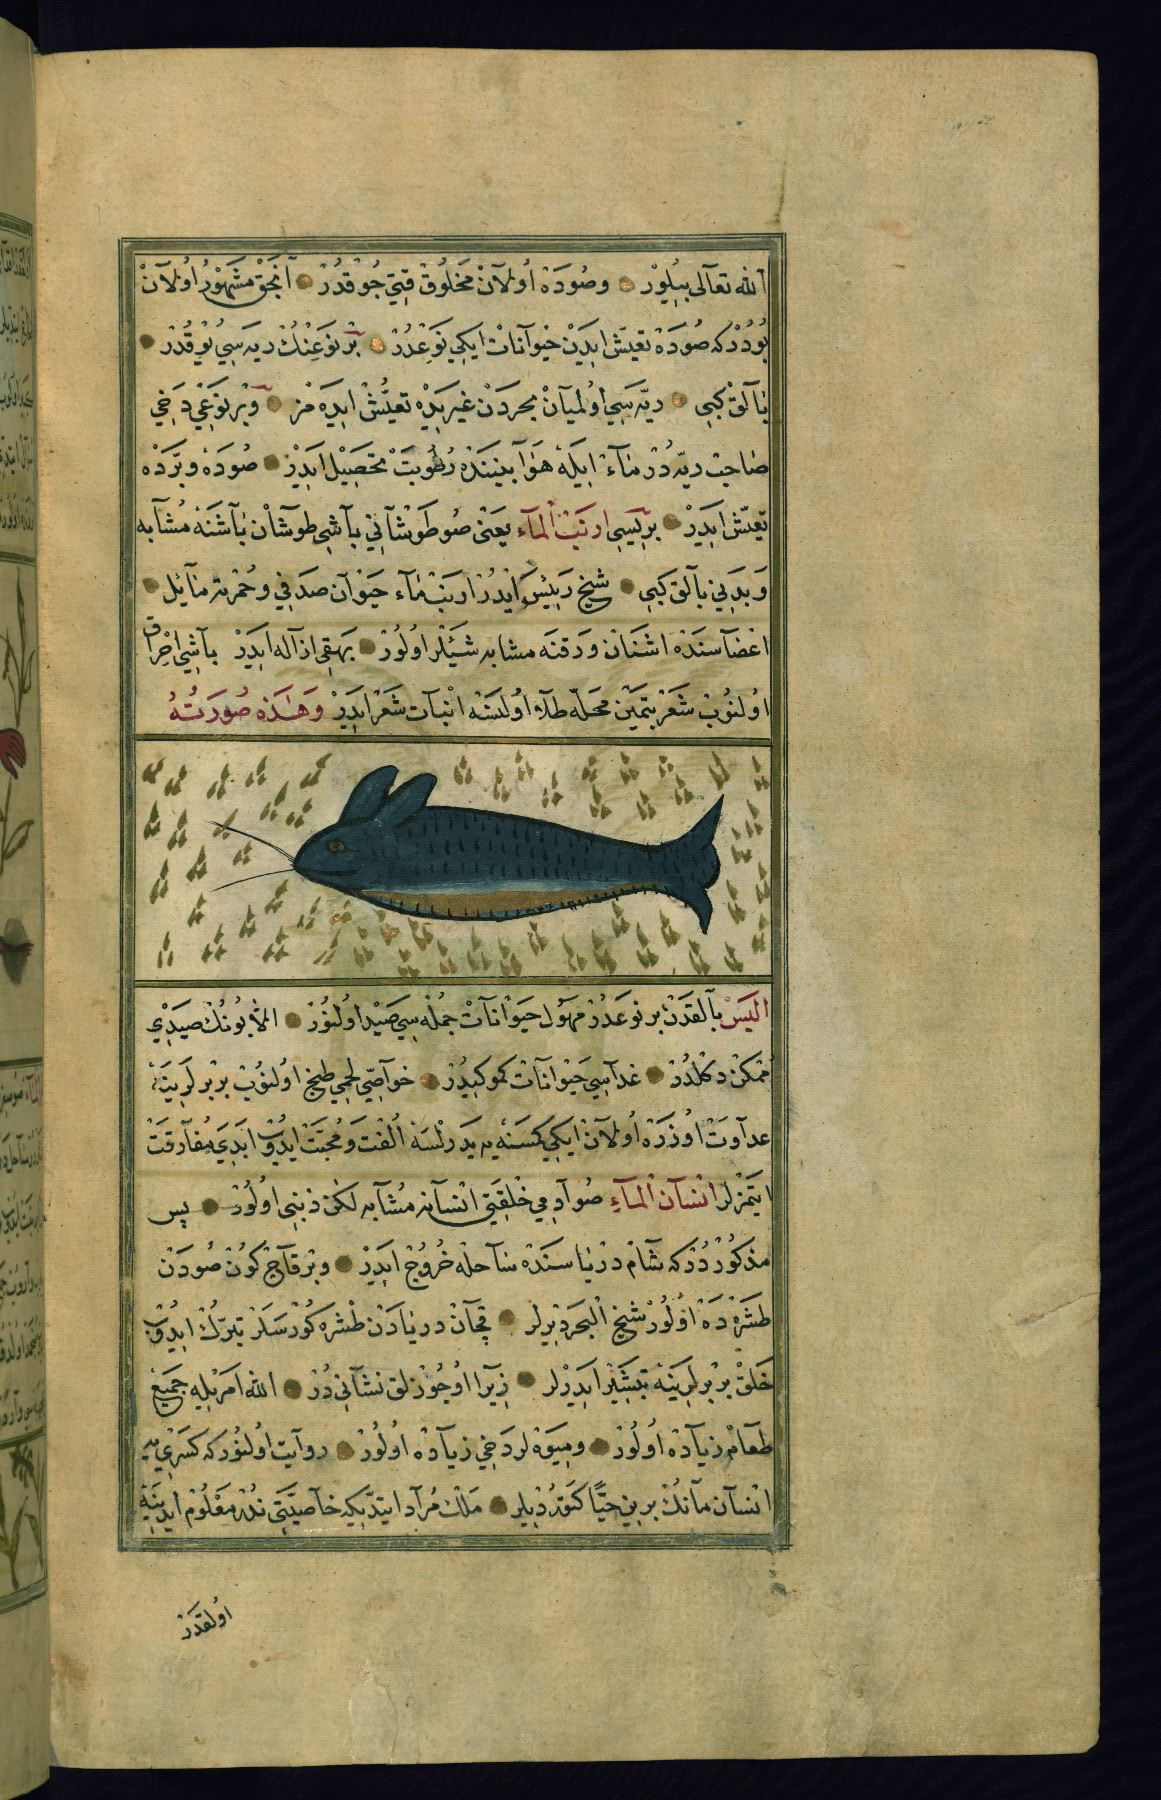 الله تعالى بيلور وصوده اولان مخلوق قتى چوقدر آنجق مشهور اولان
بودركه صوده تعيش ايدن حيوانات ايكى نوعدر بر نوعنك ريه سى يوقدر
بالق كبى ريه سى اولميان بحردن غير يده تعيش ايده مز وبر نوعى دخى
صاحب ريه در ماء ايله هوا بيننده رطوبت تحصيل ايدر صوده وبرده
تعيش ايدر بريسى ارنب الماء يعنى صو طوشانى باشى طوشان باشنه مشابه
وبدنى بالق كبى شيخ رئيس ايدر ارنب ماء حيوان صدفى وحمرته مائل
اعضاسنده اشنان ورقنه مشابه شيئلر اولور بهقى ازاله ايدر باشى احراق
اولنوب شعر بتمين محله طلا اولسه انبات شعر ايدر وهذه صورته
اليس بالقدن بر نوعدر مهول حيوانات جمله سى صيد اولنور الا بونك صيدى
ممكن دكلدر غداسى حيوانات كموكيدر خواصى لحمى طبخ اولنوب بر برلرينه
عداوت اوزره اولان ايكى كسنه يه يدرلسه الفت ومحبت ايدوب ابدى مفارقت
ايتمزلر انسان الماء صو آدمى خلقتى انسانه مشابه لكن ذنبى اولور پس
مذكوردركه شام درياسنده ساحله خروج ايدر وبر قاچ كون صودن
طشره ده اولور شيخ البحر ديرلر قچان دريادن طشره كورسه لر تبرك ايدوب
خلق بر برلرينه تبشير ايدرلر زيرا اوجوزلق نشانى در الله امريله جميع
طعام زياده اولور وميوه لر دخى زياده اولور روايت اولنور كه كسرى يه
انسان مانك برينى حيا كتورديلر ملك مراد ايتديكه خاصيتى ندر معلوم ايدينه
اولقدر